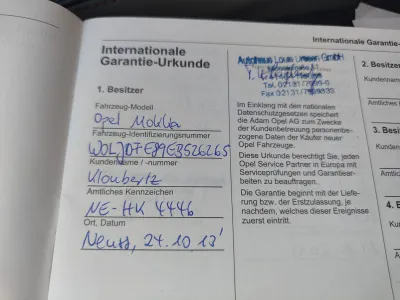 Internationale Garantie-
Internationale
Garantie-Urkunde
1. Besitzer
Fahrzeug-Modell
Opel Mokka
Fahrzeug-Identifizierungsnummer
W0LJD7E89E3526265
Kundenname / -nummer
Kloubertz
Amtliches Kennzeichen
NE-HK 4446
Ort, Datum
Neuss, 24.10.13'
Autohaus Louis GmbH
Tel. 02131/
Fax 02131/
Im Einklang mit den nationalen
Datenschutzgesetzen speichert
die Adam Opel AG zum Zwecke
der Kundenbetreuung personenbe-
zogene Daten der Käufer neuer
Opel Fahrzeuge.
Diese Urkunde berechtigt Sie, jeden
Opel Service Partner in Europa mit
Serviceprüfungen und Garantiear-
beiten zu beauftragen.
Die Garantie beginnt mit der Liefe-
rung bzw. der Erstzulassung, je
nachdem, welches dieser Ereignisse
zuerst eintritt.
2. Besitzer
Kundennam
Amtliches
3. Besi
Kunden
Amtlic
4. B